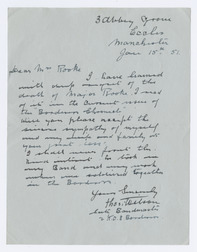 3 Abbey Grove
Eccles
Manchester
Jan 15th 5
Dear Mrs Rooke
I have learned
with deep regret of the
death of Major Rooke. I read
of it in the current issue of
the Borderers Chronicle
Will you please accept the
sincere sympathy of myself
and my wife and family in
your great loss.
I shall never forget the
kind interest he took in
my Band and my work
when we soldiered together
in the Borderers
Yours Sincerely
late Bandmaster
Borderers